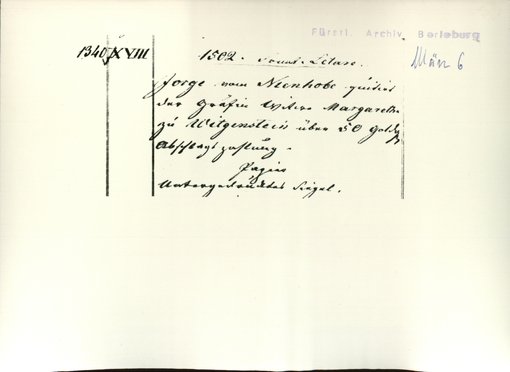 Fürstl. Archiv Berleburg
1340 XVIII 1502. Laetare.
März 6
Jorge vom Nienhobe quittirt
der Gräfin Witwe Margarethe
zu Witgenstein über 50 Goldg.
Abschlagszahlung.
Papier
Untergedrücktes Siegel.